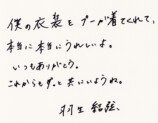 僕の衣装をプーが着てくれて、
本当に本当にうれしいよ。
いつもありがとう。
これからもずっと共にいようね。
羽生結弦